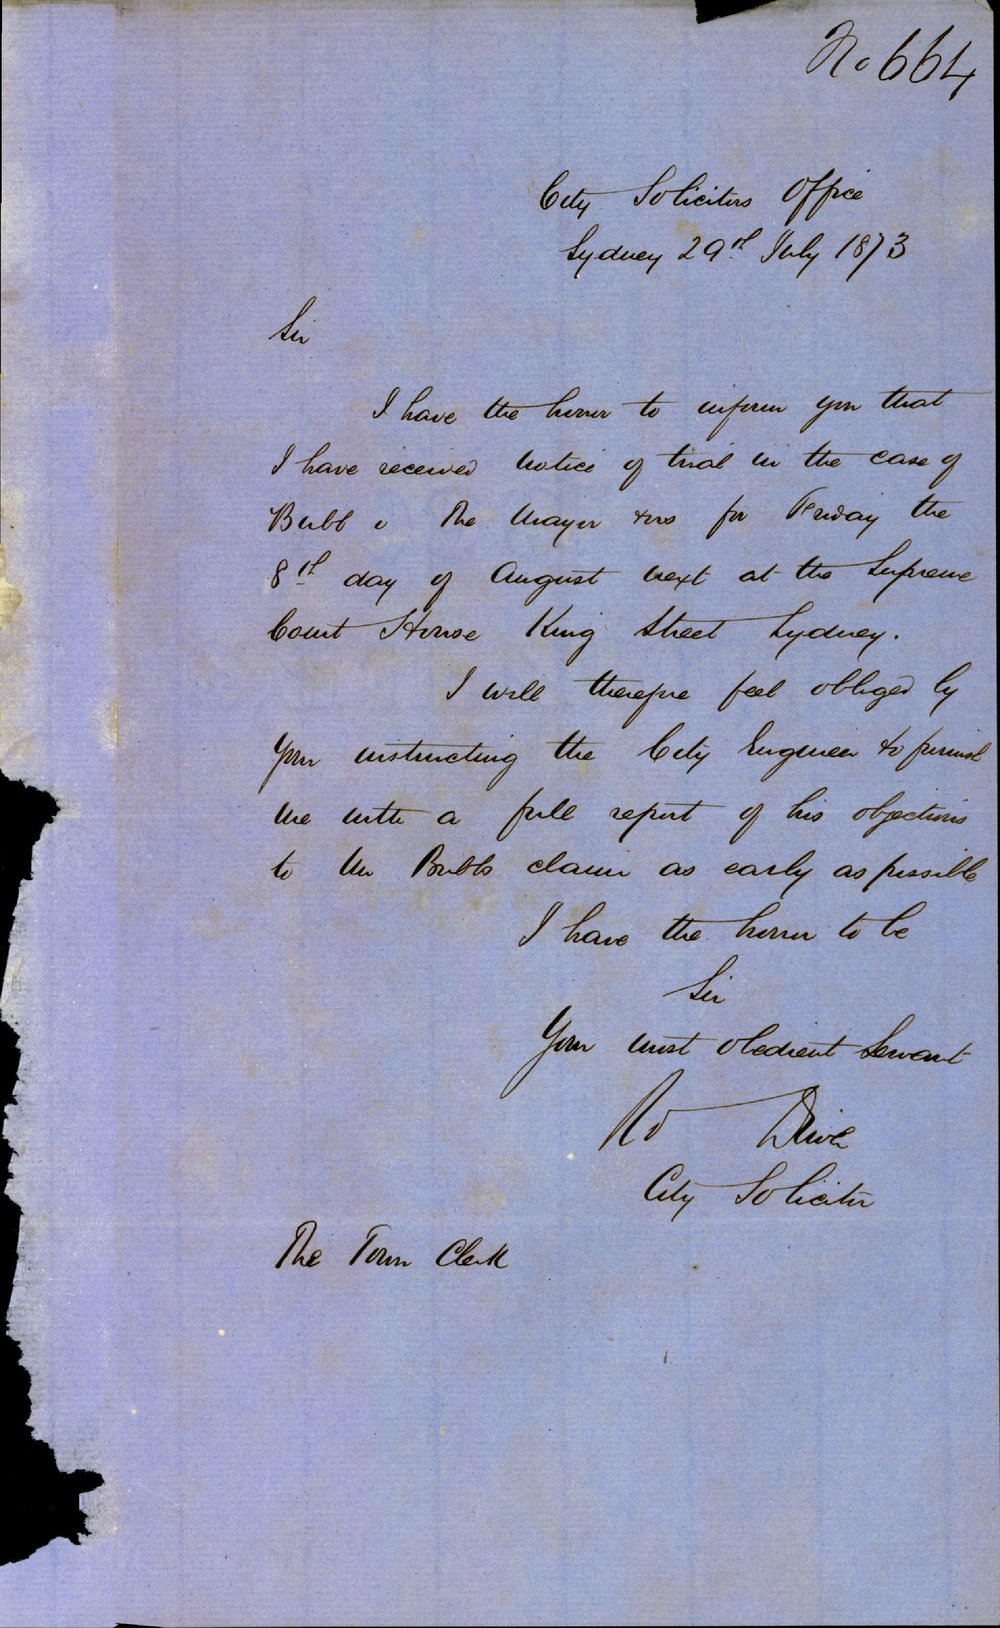 No 664
City Solicitors Office
Sydney 29th July 1873
Sir
I have the honor to inform you that
I have received notice of trial in the case of
Bubb v The Mayor &ors for Friday the
8th day of August next at the Supreme
Court House King Street Sydney.
I will therefore feel obliged by
your instructing the City Engineer to furnish
me with a full report of his objections
to Mr Bubbs claim as early as possible
I have the honor to be
Sir
Your most obedient Servant
Rd Driver
City Solicitor
The Town Clerk